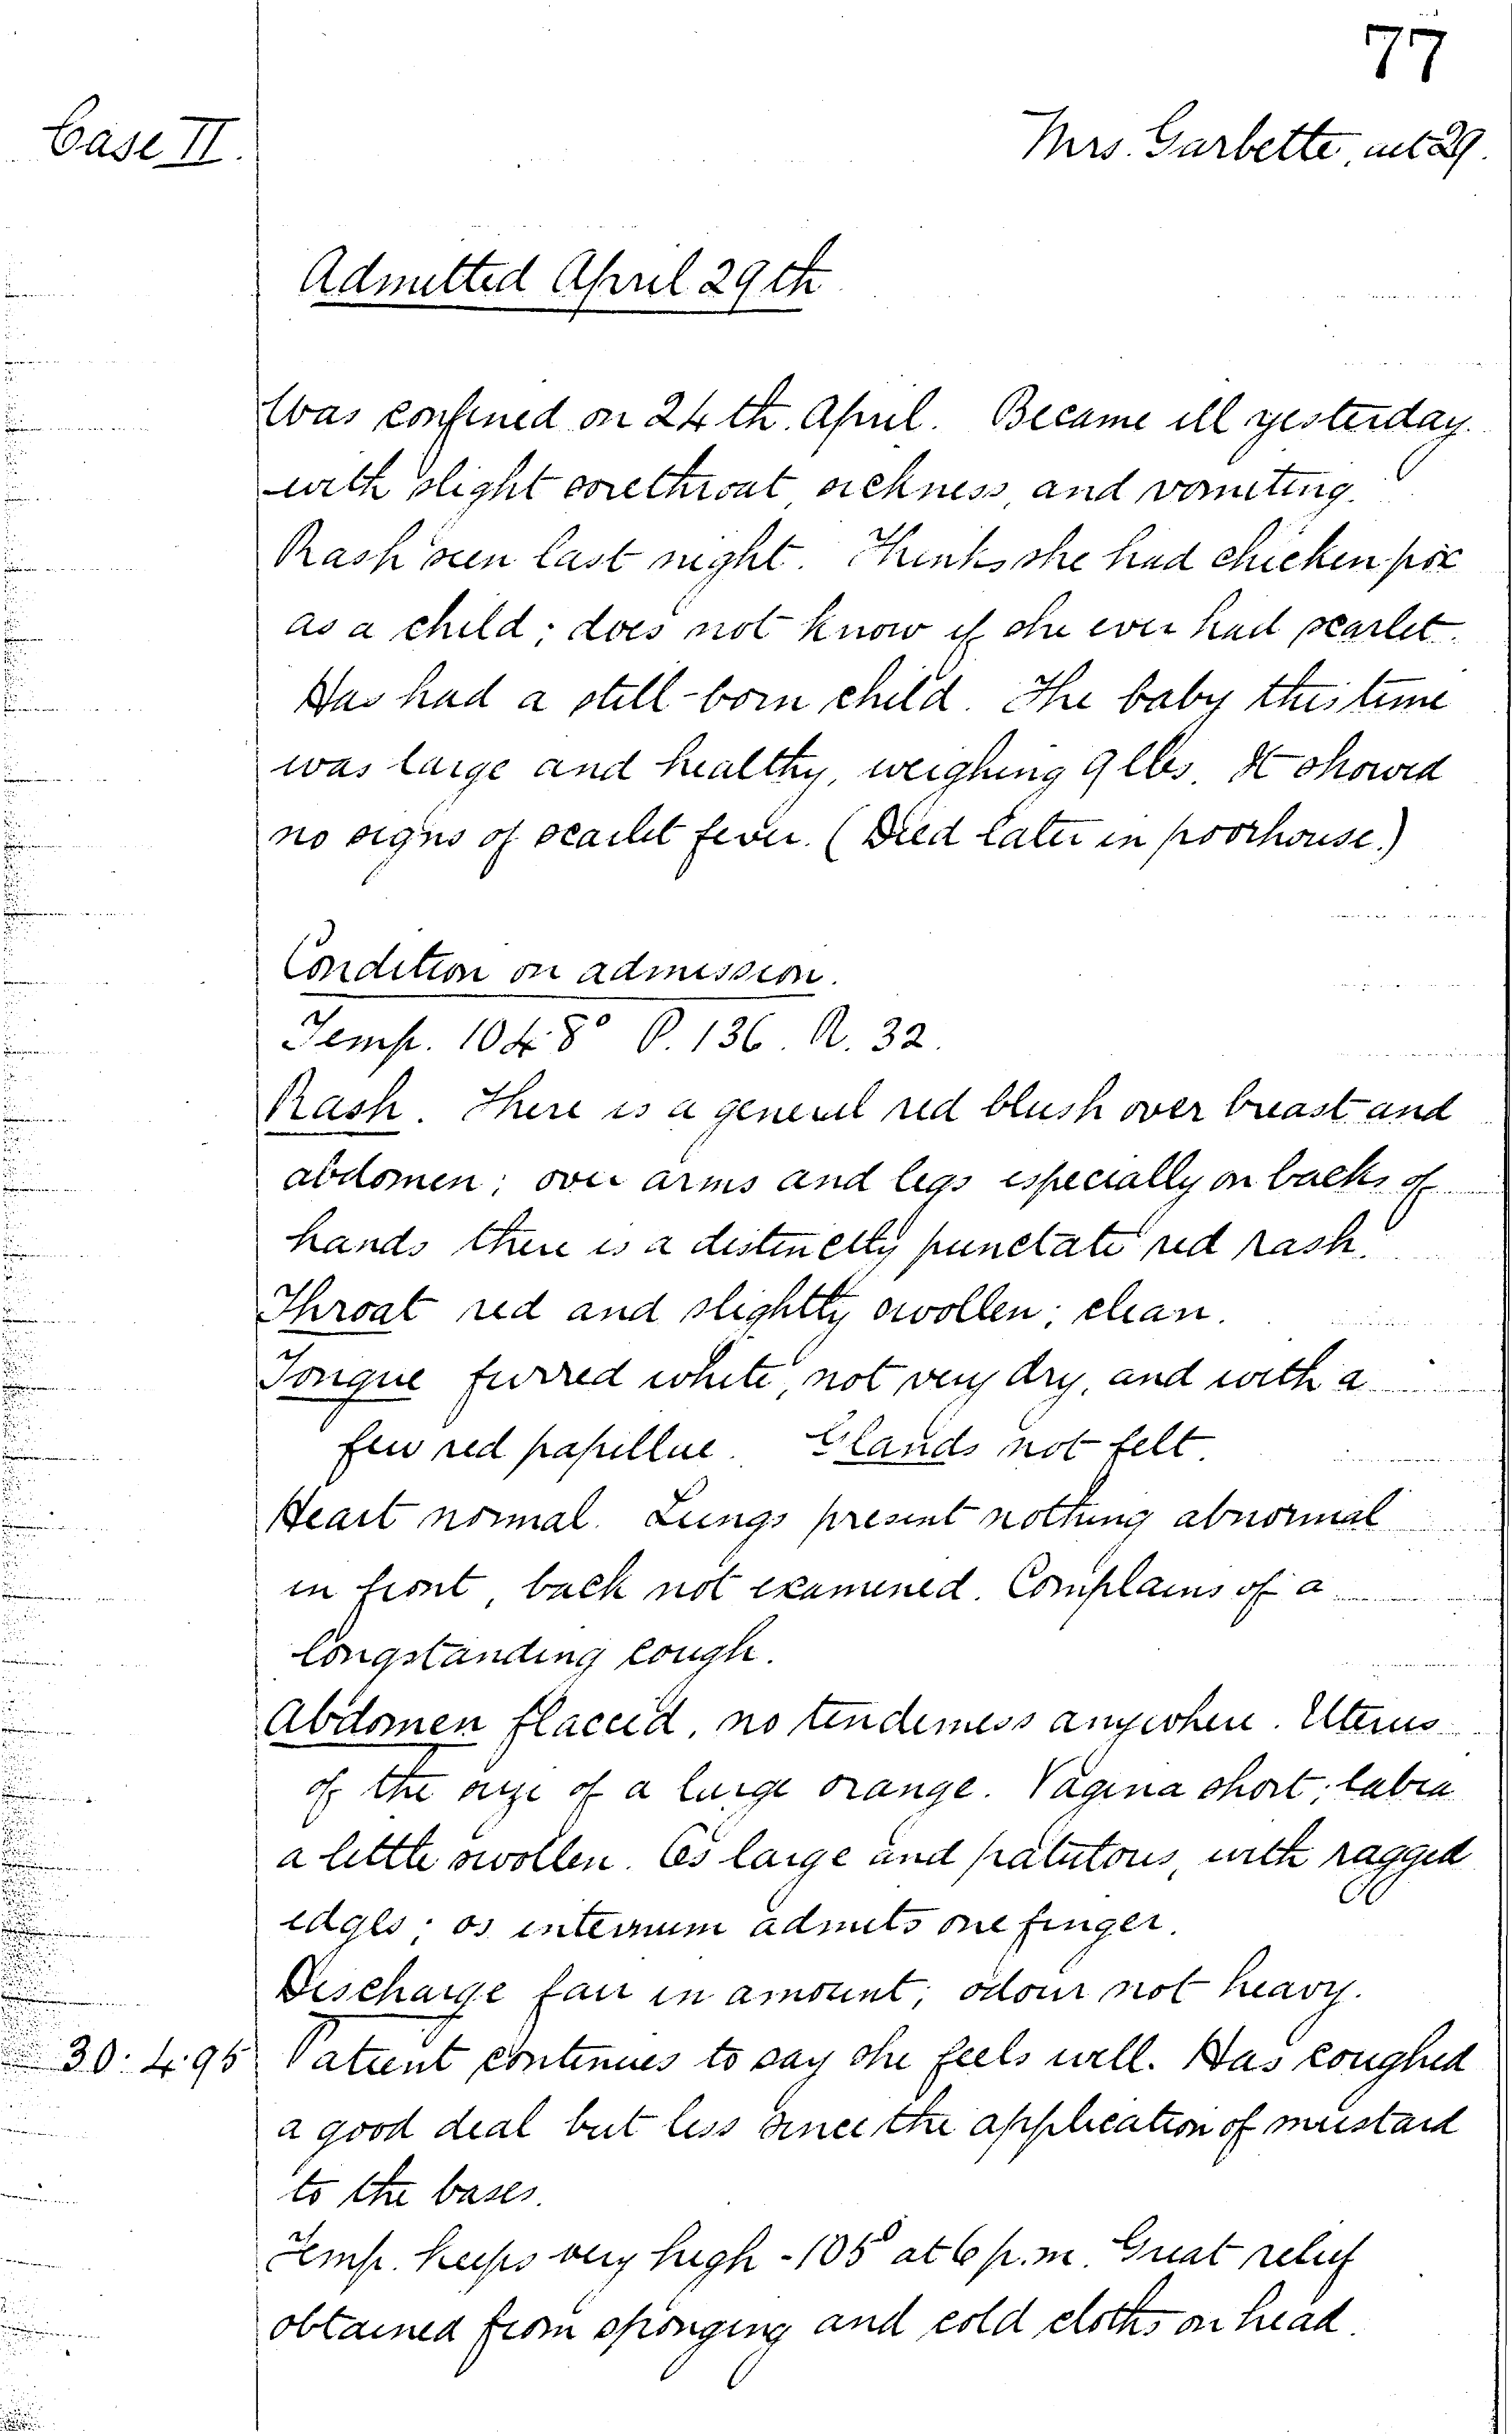 77
Case II.
Mrs. Garbette, aet 29.
Admitted April 29th
Was confined on 24th. April. Became ill yesterday.
with slight sorethroat, sickness, and vomiting.
Rash seen last night. Thinks she had chicken pox
as a child; does not know if she ever had scarlet.
Has had a still-born child. The baby this time
was large and healthy, weighing 9 lbs. It showed
no signs of scarlet fever. (Died later in poorhouse.)
Condition on admission.
Temp. 104.8° P. 136. R. 32.
Rash. There is a general red blush over breast and
abdomen; over arms and legs especially on backs of
hands there is a distinctly punctate red rash.
Throat red and slightly swollen; clean.
Tongue furred white, not very dry, and with a
few red papillae. Glands not felt.
Heart normal. Lungs present nothing abnormal
in front, back not examined. Complains of a
longstanding cough.
Abdomen flaccid, no tenderness anywhere. Uterus
of the size of a large orange. Vagina short; labia
a little swollen. Os large and patulous, with ragged
edges; os internum admits one finger.
Discharge fair in amount; odour not heavy.
30.4.95 Patient continues to say she feels well. Has coughed
a good deal but less since the application of mustard
to the bases.
Temp. keeps very high - 105° at 6 p.m. Great relief
obtained from sponging and cold cloths on head.